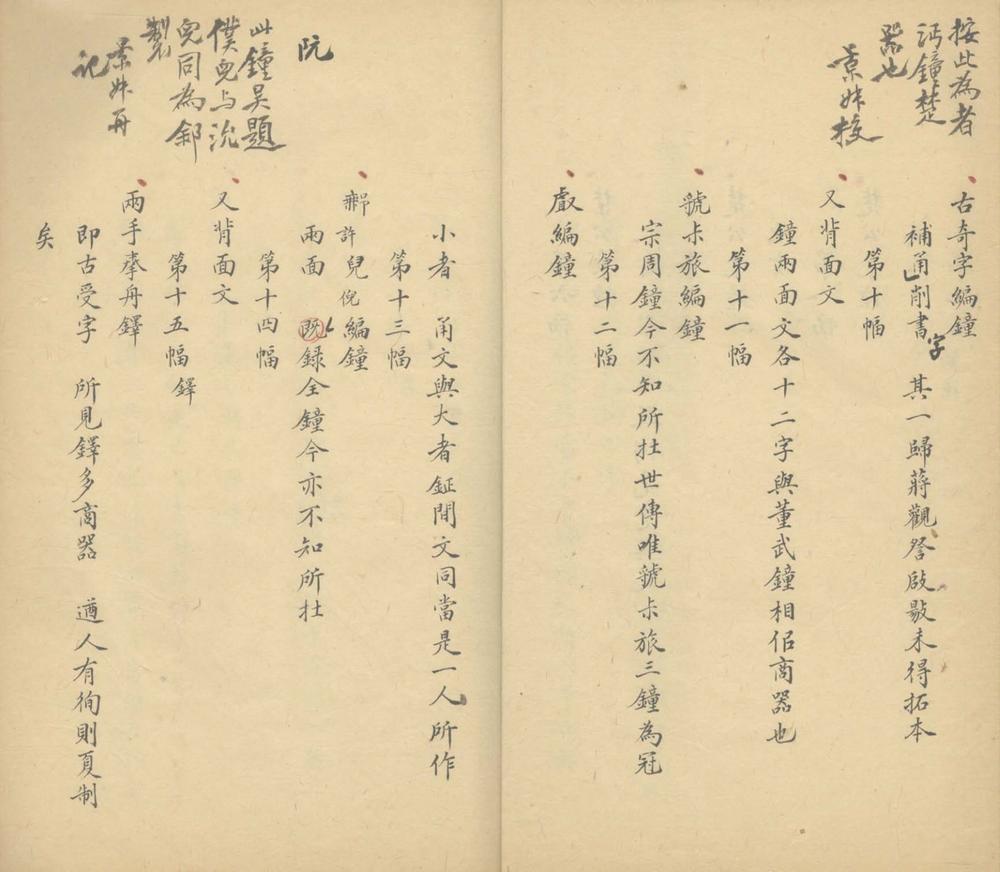 按此為者
沔鐘楚
器也
景姝校
古奇字編鐘
補甬削書字 其一歸蔣觀詧啟敭未得拓本
第十幅
又背面文
鐘兩面文各十二字與董武鐘相佀商器也
第十一幅
虢尗旅編鐘
宗周鐘今不知所在世傳唯虢尗旅三鐘為冠
第十二幅
䖒編鐘
小者 甬文與大者鉦間文同當是一人所作
第十三幅
鄦許兒倪編鐘
兩面 既録全鐘今亦不知所在
第十四幅
又背面文
第十五幅 鐸
兩手奉舟鐸
即古受字 所見鐸多商器 遒人有徇則夏制
矣
阮
此鐘吳題
僕兒与沇
兒同為鄒
製
景姝再
記